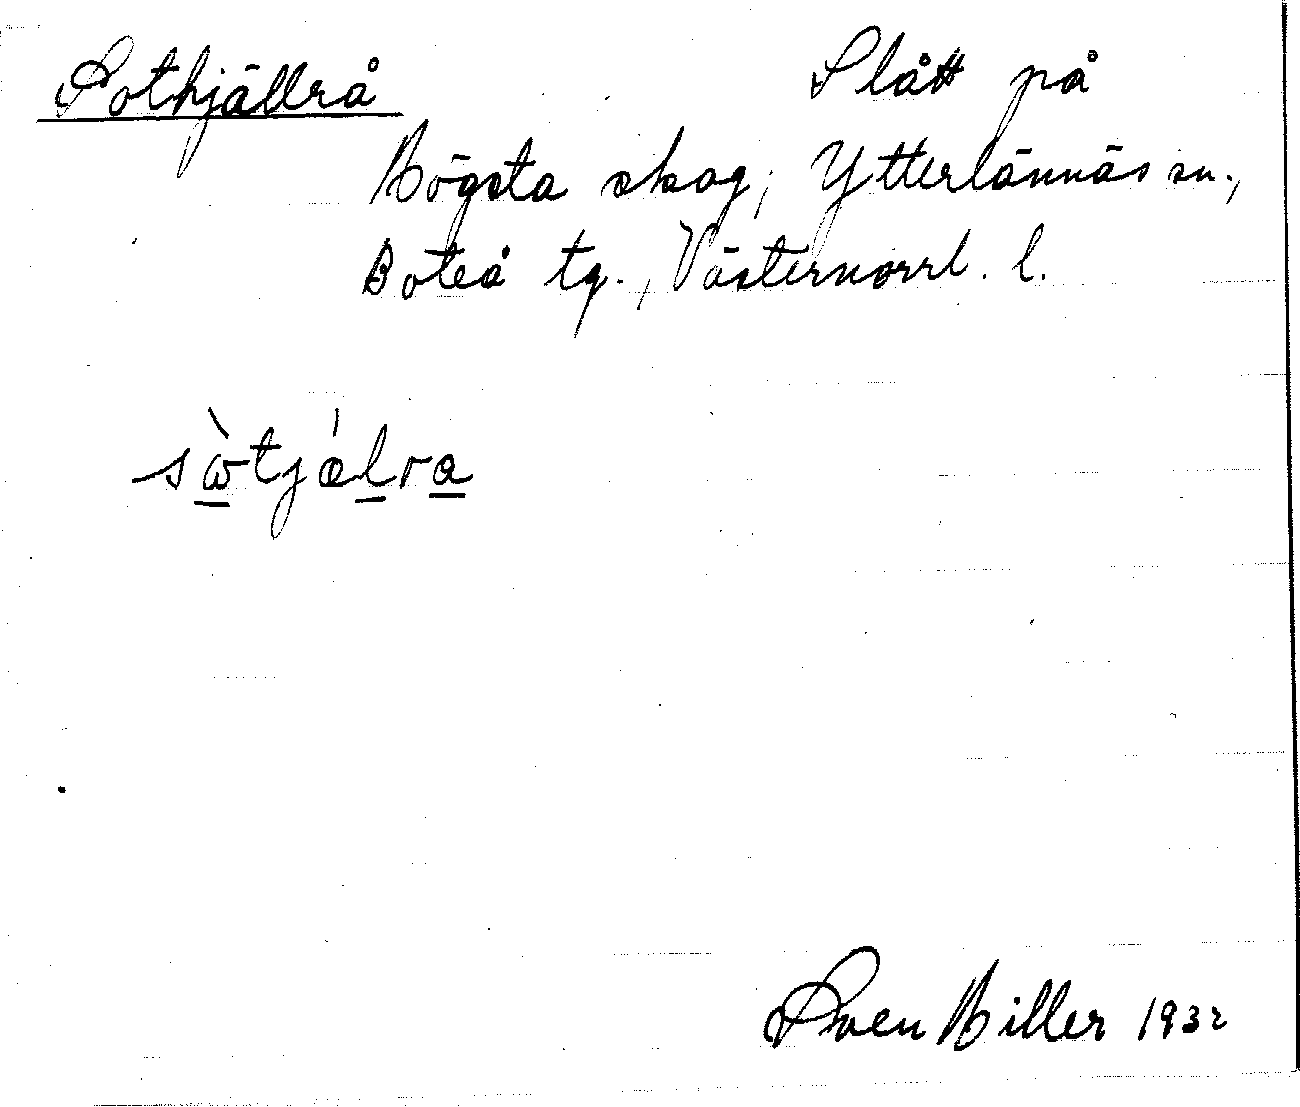 Sothjällrå
Slått på
Högsta skog, Ytterlännäs sn.,
Boteå tg., Västernorrl. l.
sὼtjǽlra
Sven Hiller 1932